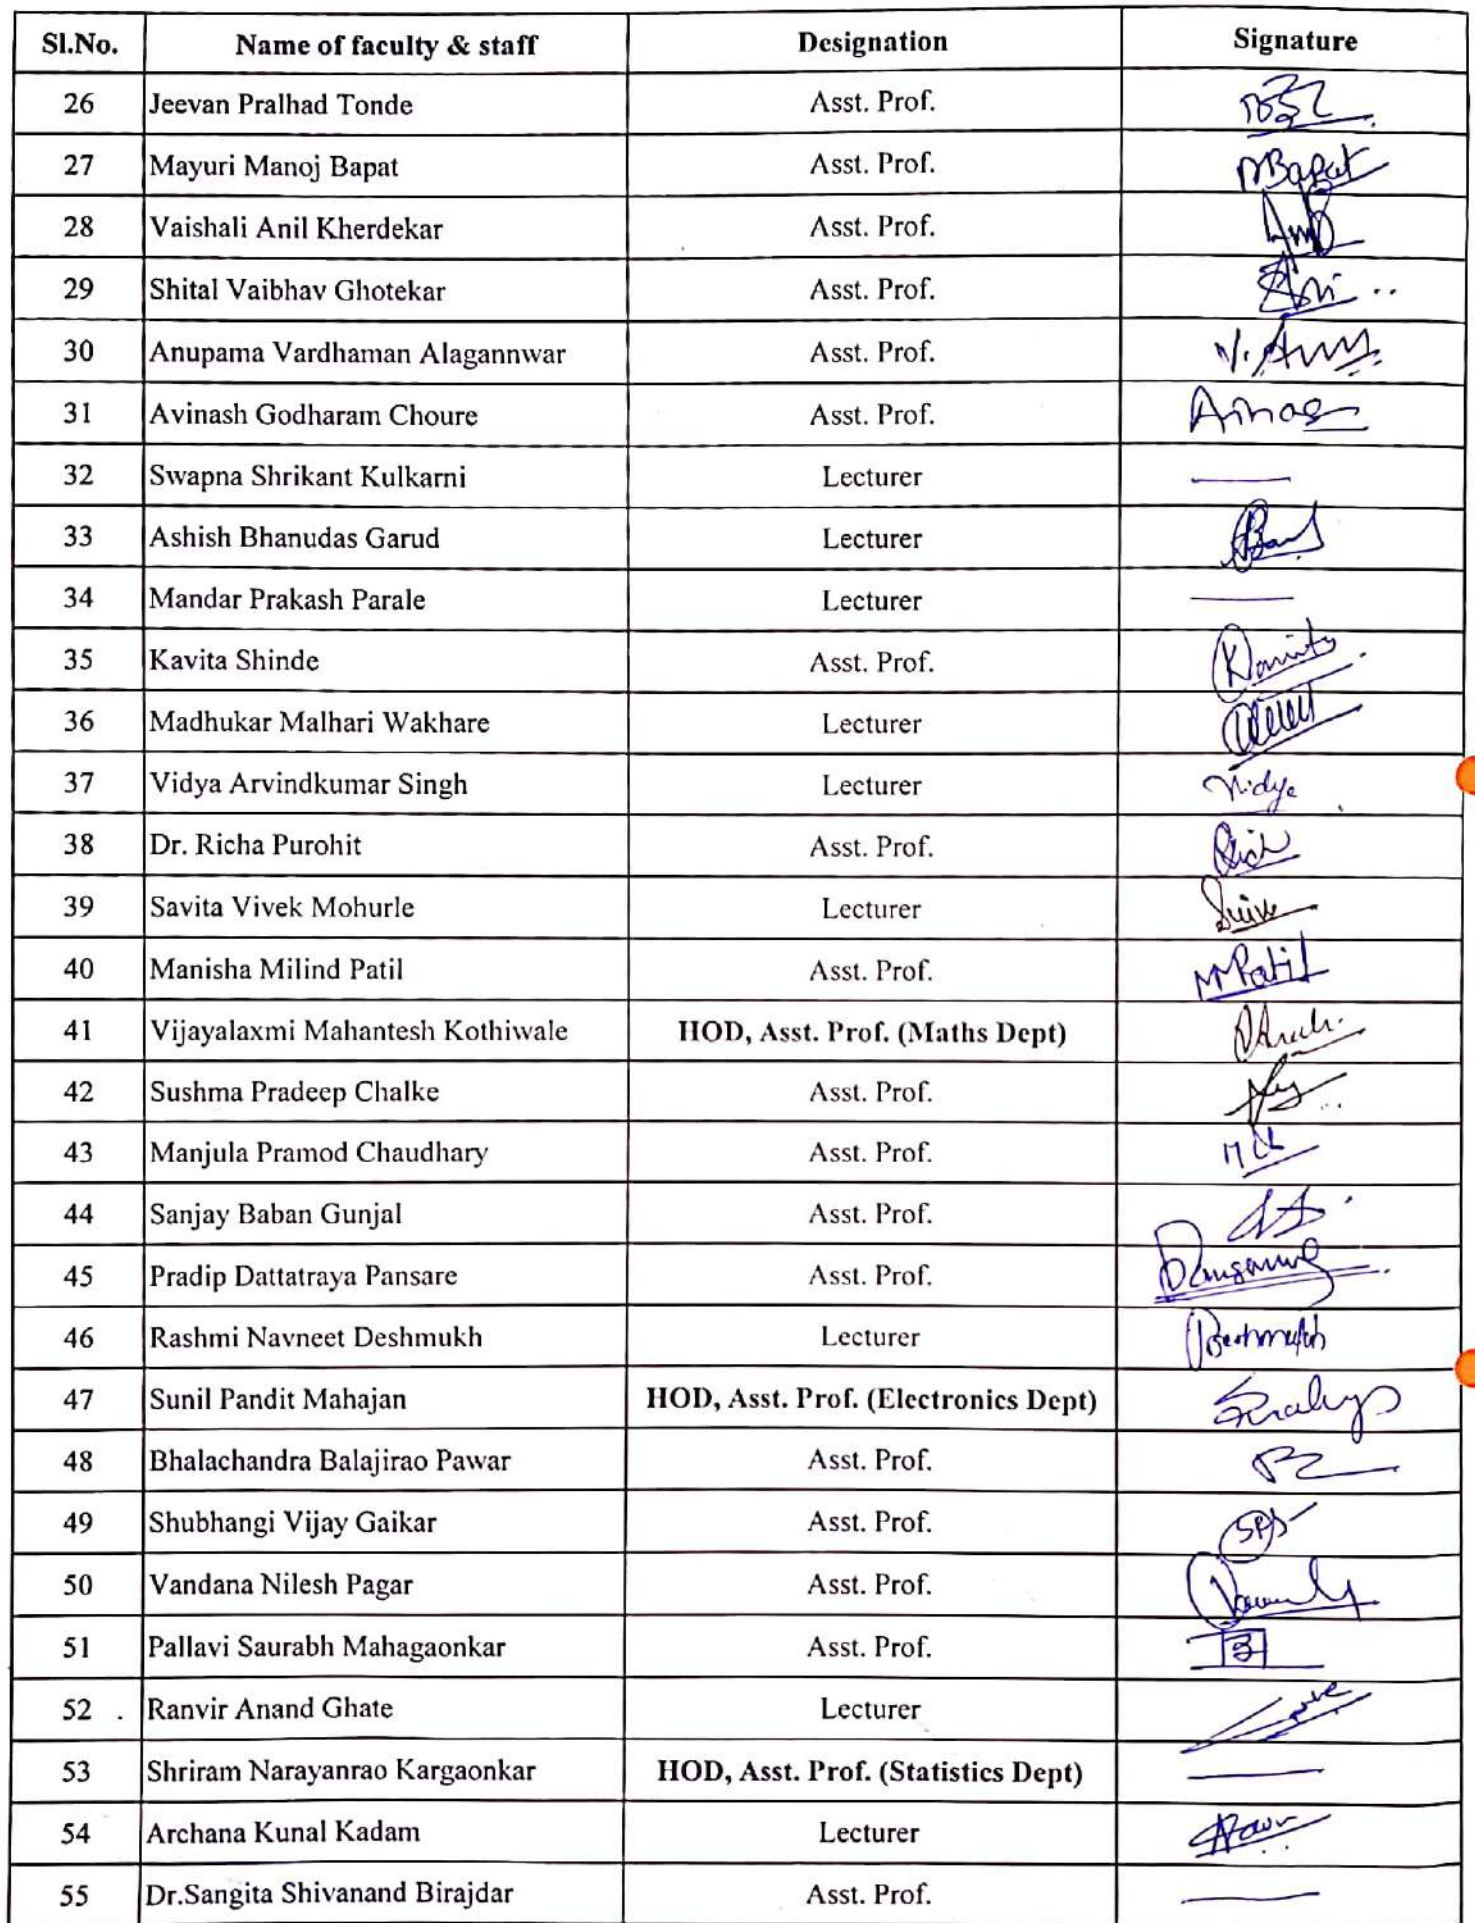 Sl.No. Name of faculty & staff Designation Signature
26 Jeevan Pralhad Tonde Asst. Prof.
27 Mayuri Manoj Bapat Asst. Prof. MBapat
28 Vaishali Anil Kherdekar Asst. Prof.
29 Shital Vaibhav Ghotekar Asst. Prof.
30 Anupama Vardhaman Alagannwar Asst. Prof.
31 Avinash Godharam Choure Asst. Prof.
32 Swapna Shrikant Kulkarni Lecturer
33 Ashish Bhanudas Garud Lecturer
34 Mandar Prakash Parale Lecturer
35 Kavita Shinde Asst. Prof.
36 Madhukar Malhari Wakhare Lecturer
37 Vidya Arvindkumar Singh Lecturer Vidya
38 Dr. Richa Purohit Asst. Prof.
39 Savita Vivek Mohurle Lecturer
40 Manisha Milind Patil Asst. Prof. MPatil
41 Vijayalaxmi Mahantesh Kothiwale HOD, Asst. Prof. (Maths Dept)
42 Sushma Pradeep Chalke Asst. Prof.
43 Manjula Pramod Chaudhary Asst. Prof.
44 Sanjay Baban Gunjal Asst. Prof.
45 Pradip Dattatraya Pansare Asst. Prof.
46 Rashmi Navneet Deshmukh Lecturer
47 Sunil Pandit Mahajan HOD, Asst. Prof. (Electronics Dept)
48 Bhalachandra Balajirao Pawar Asst. Prof.
49 Shubhangi Vijay Gaikar Asst. Prof.
50 Vandana Nilesh Pagar Asst. Prof.
51 Pallavi Saurabh Mahagaonkar Asst. Prof.
52 Ranvir Anand Ghate Lecturer
53 Shriram Narayanrao Kargaonkar HOD, Asst. Prof. (Statistics Dept)
54 Archana Kunal Kadam Lecturer
55 Dr.Sangita Shivanand Birajdar Asst. Prof.